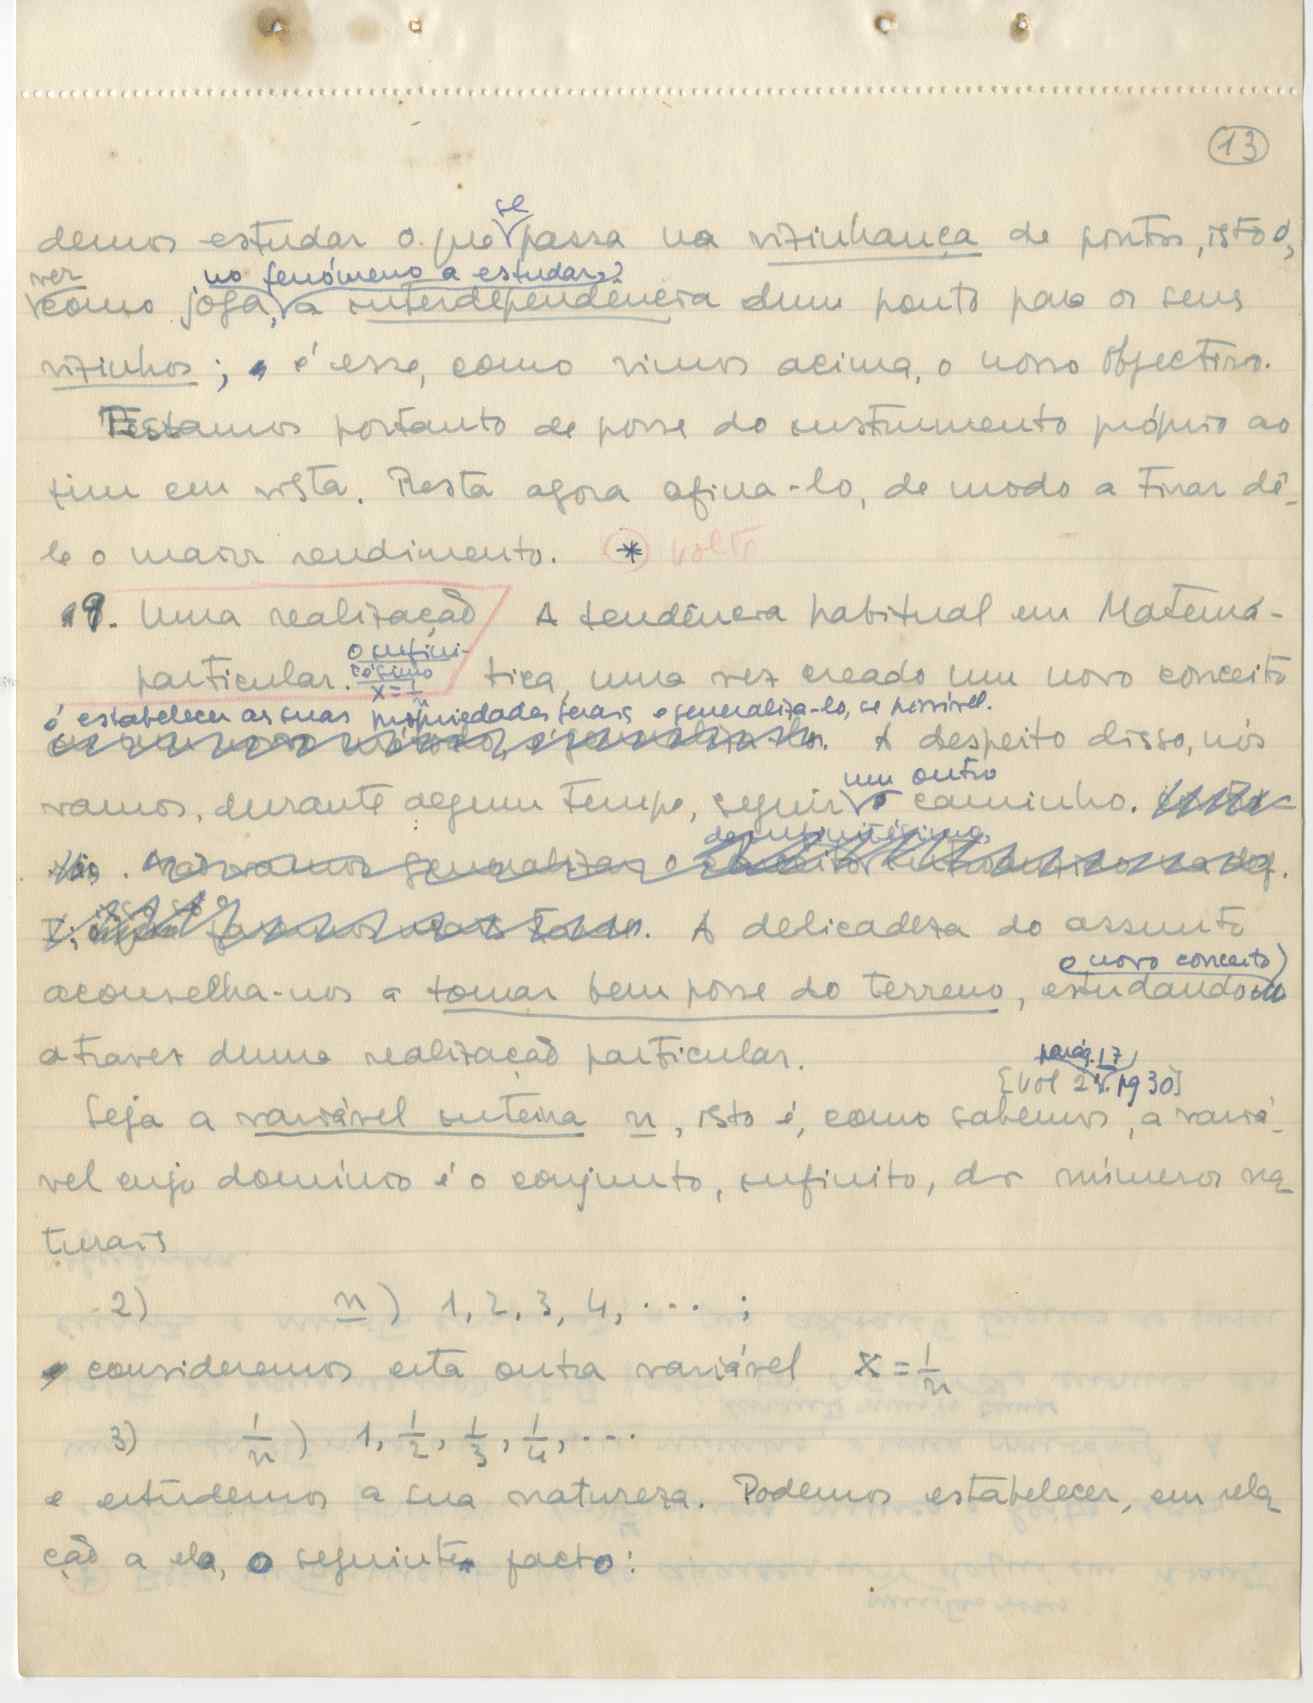 13
se
demos estudar o que passa na vizinhança de pontos, isto é,
ver no fenómeno a estudar,
como joga, a interdependência dum ponto para os seus
vizinhos; é esse, como vimos acima, o nosso objectivo.
Estamos portanto de posse do instrumento próprio ao
fim em vista. Resta agora afina-lo, de modo a tirar dê-
le o maior rendimento. * volte
9. Uma realização A tendência habitual em Matemá-
o infini-
tésimo
x = 1/n
particular. tica, uma vez creado um novo conceito
é estabelecer as suas propriedades gerais e generaliza-lo, se possível.
A despeito disso, nós
um outro
vamos, durante algum tempo, seguir caminho.
de infinitésimo
Não vamos generalizar o
A delicadeza do assunto
o novo conceito
aconselha-nos a tomar bem posse do terreno, estudando
atravez duma realização particular.
parág. 17
[Vol 2º. pg 30]
Seja a variável inteira n, isto é, como sabemos, a variá-
vel cujo domínio é o conjunto, infinito, dos números na
turais
2) n) 1, 2, 3, 4, ... ;
consideremos esta outra variável x = 1/n
3) 1/n) 1, 1/2, 1/3, 1/4, ...
e estudemos a sua natureza. Podemos estabelecer, em rela
ção a ela, o seguinte facto: